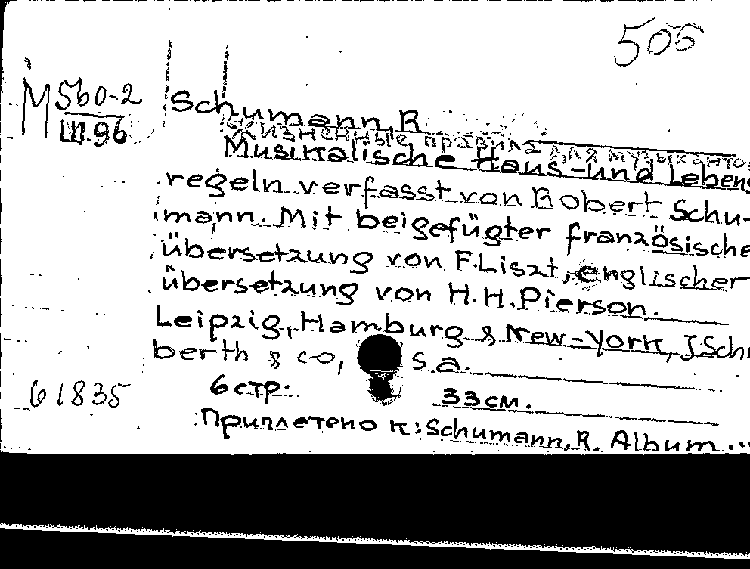 505
М 560-2
III.96
Schumann, R.
Жизненные правила для музыкантов
Musikalische Haus- und Lebens
regeln verfasst von Robert Schu-
mann. Mit beigefügter französische
übersetzung von F. Liszt, englischer
übersetzung von H. H. Pierson.
Leipzig, Hamburg & New-York, J. Schu
berth & co, s.a.
6 стр. 33 см.
61835
Приплетено к: Schumann, R. Album...